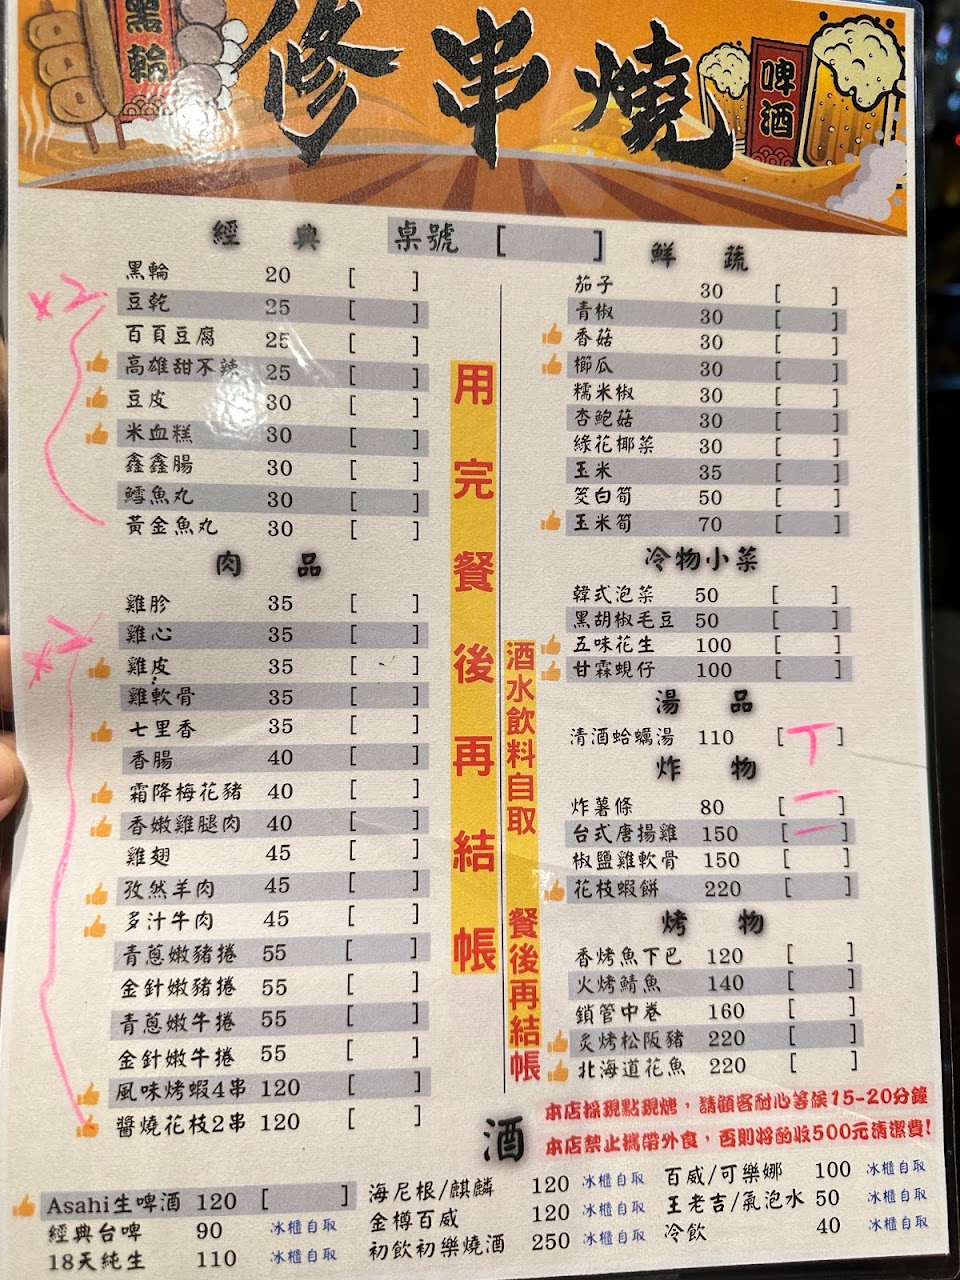 黑輪
修串燒
啤酒
經典
桌號 [ ]
黑輪 20 [ ]
豆乾 25 [ ]
百頁豆腐 25 [ ]
高雄甜不辣 25 [ ]
豆皮 30 [ ]
米血糕 30 [ ]
鑫鑫腸 30 [ ]
鱈魚丸 30 [ ]
黃金魚丸 30 [ ]
x2
肉品
雞胗 35 [ ]
雞心 35 [ ]
雞皮 35 [ ]
雞軟骨 35 [ ]
七里香 35 [ ]
香腸 40 [ ]
霜降梅花豬 40 [ ]
香嫩雞腿肉 40 [ ]
雞翅 45 [ ]
孜然羊肉 45 [ ]
多汁牛肉 45 [ ]
青蔥嫩豬捲 55 [ ]
金針嫩豬捲 55 [ ]
青蔥嫩牛捲 55 [ ]
金針嫩牛捲 55 [ ]
風味烤蝦4串 120 [ ]
醬燒花枝2串 120 [ ]
x2
用完餐後再結帳
酒水飲料自取
餐後再結帳
鮮蔬
茄子 30 [ ]
青椒 30 [ ]
香菇 30 [ ]
櫛瓜 30 [ ]
糯米椒 30 [ ]
杏鮑菇 30 [ ]
綠花椰菜 30 [ ]
玉米 35 [ ]
筊白筍 50 [ ]
玉米筍 70 [ ]
冷物小菜
韓式泡菜 50 [ ]
黑胡椒毛豆 50 [ ]
五味花生 100 [ ]
甘霖蜆仔 100 [ ]
湯品
清酒蛤蠣湯 110 [ 丅 ]
炸物
炸薯條 80 [ 一 ]
台式唐揚雞 150 [ 一 ]
椒鹽雞軟骨 150 [ ]
花枝蝦餅 220 [ ]
烤物
香烤魚下巴 120 [ ]
火烤鯖魚 140 [ ]
鎖管中卷 160 [ ]
炙烤松阪豬 220 [ ]
北海道花魚 220 [ ]
本店採現點現烤，請顧客耐心等侯15-20分鐘
本店禁止攜帶外食，否則將酌收500元清潔費!
酒
Asahi生啤酒 120 [ ]
經典台啤 90 冰櫃自取
18天純生 110 冰櫃自取
海尼根/麒麟 120 冰櫃自取
金樽百威 120 冰櫃自取
初飲初樂燒酒 250 冰櫃自取
百威/可樂娜 100 冰櫃自取
王老吉/氣泡水 50 冰櫃自取
冷飲 40 冰櫃自取